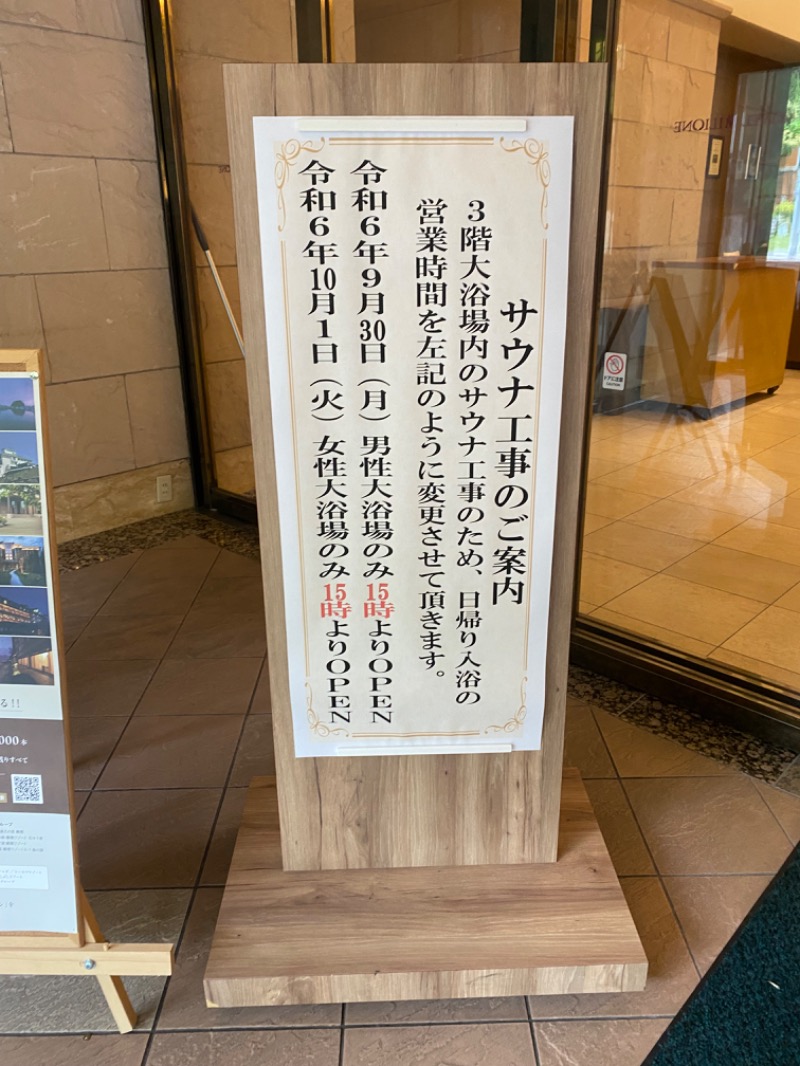 サウナ工事のご案内
3階大浴場内のサウナ工事のため、日帰り入浴の
営業時間を左記のように変更させて頂きます。
令和6年9月30日(月)男性大浴場のみ15時よりOPEN
令和6年10月1日(火)女性大浴場のみ15時よりOPEN